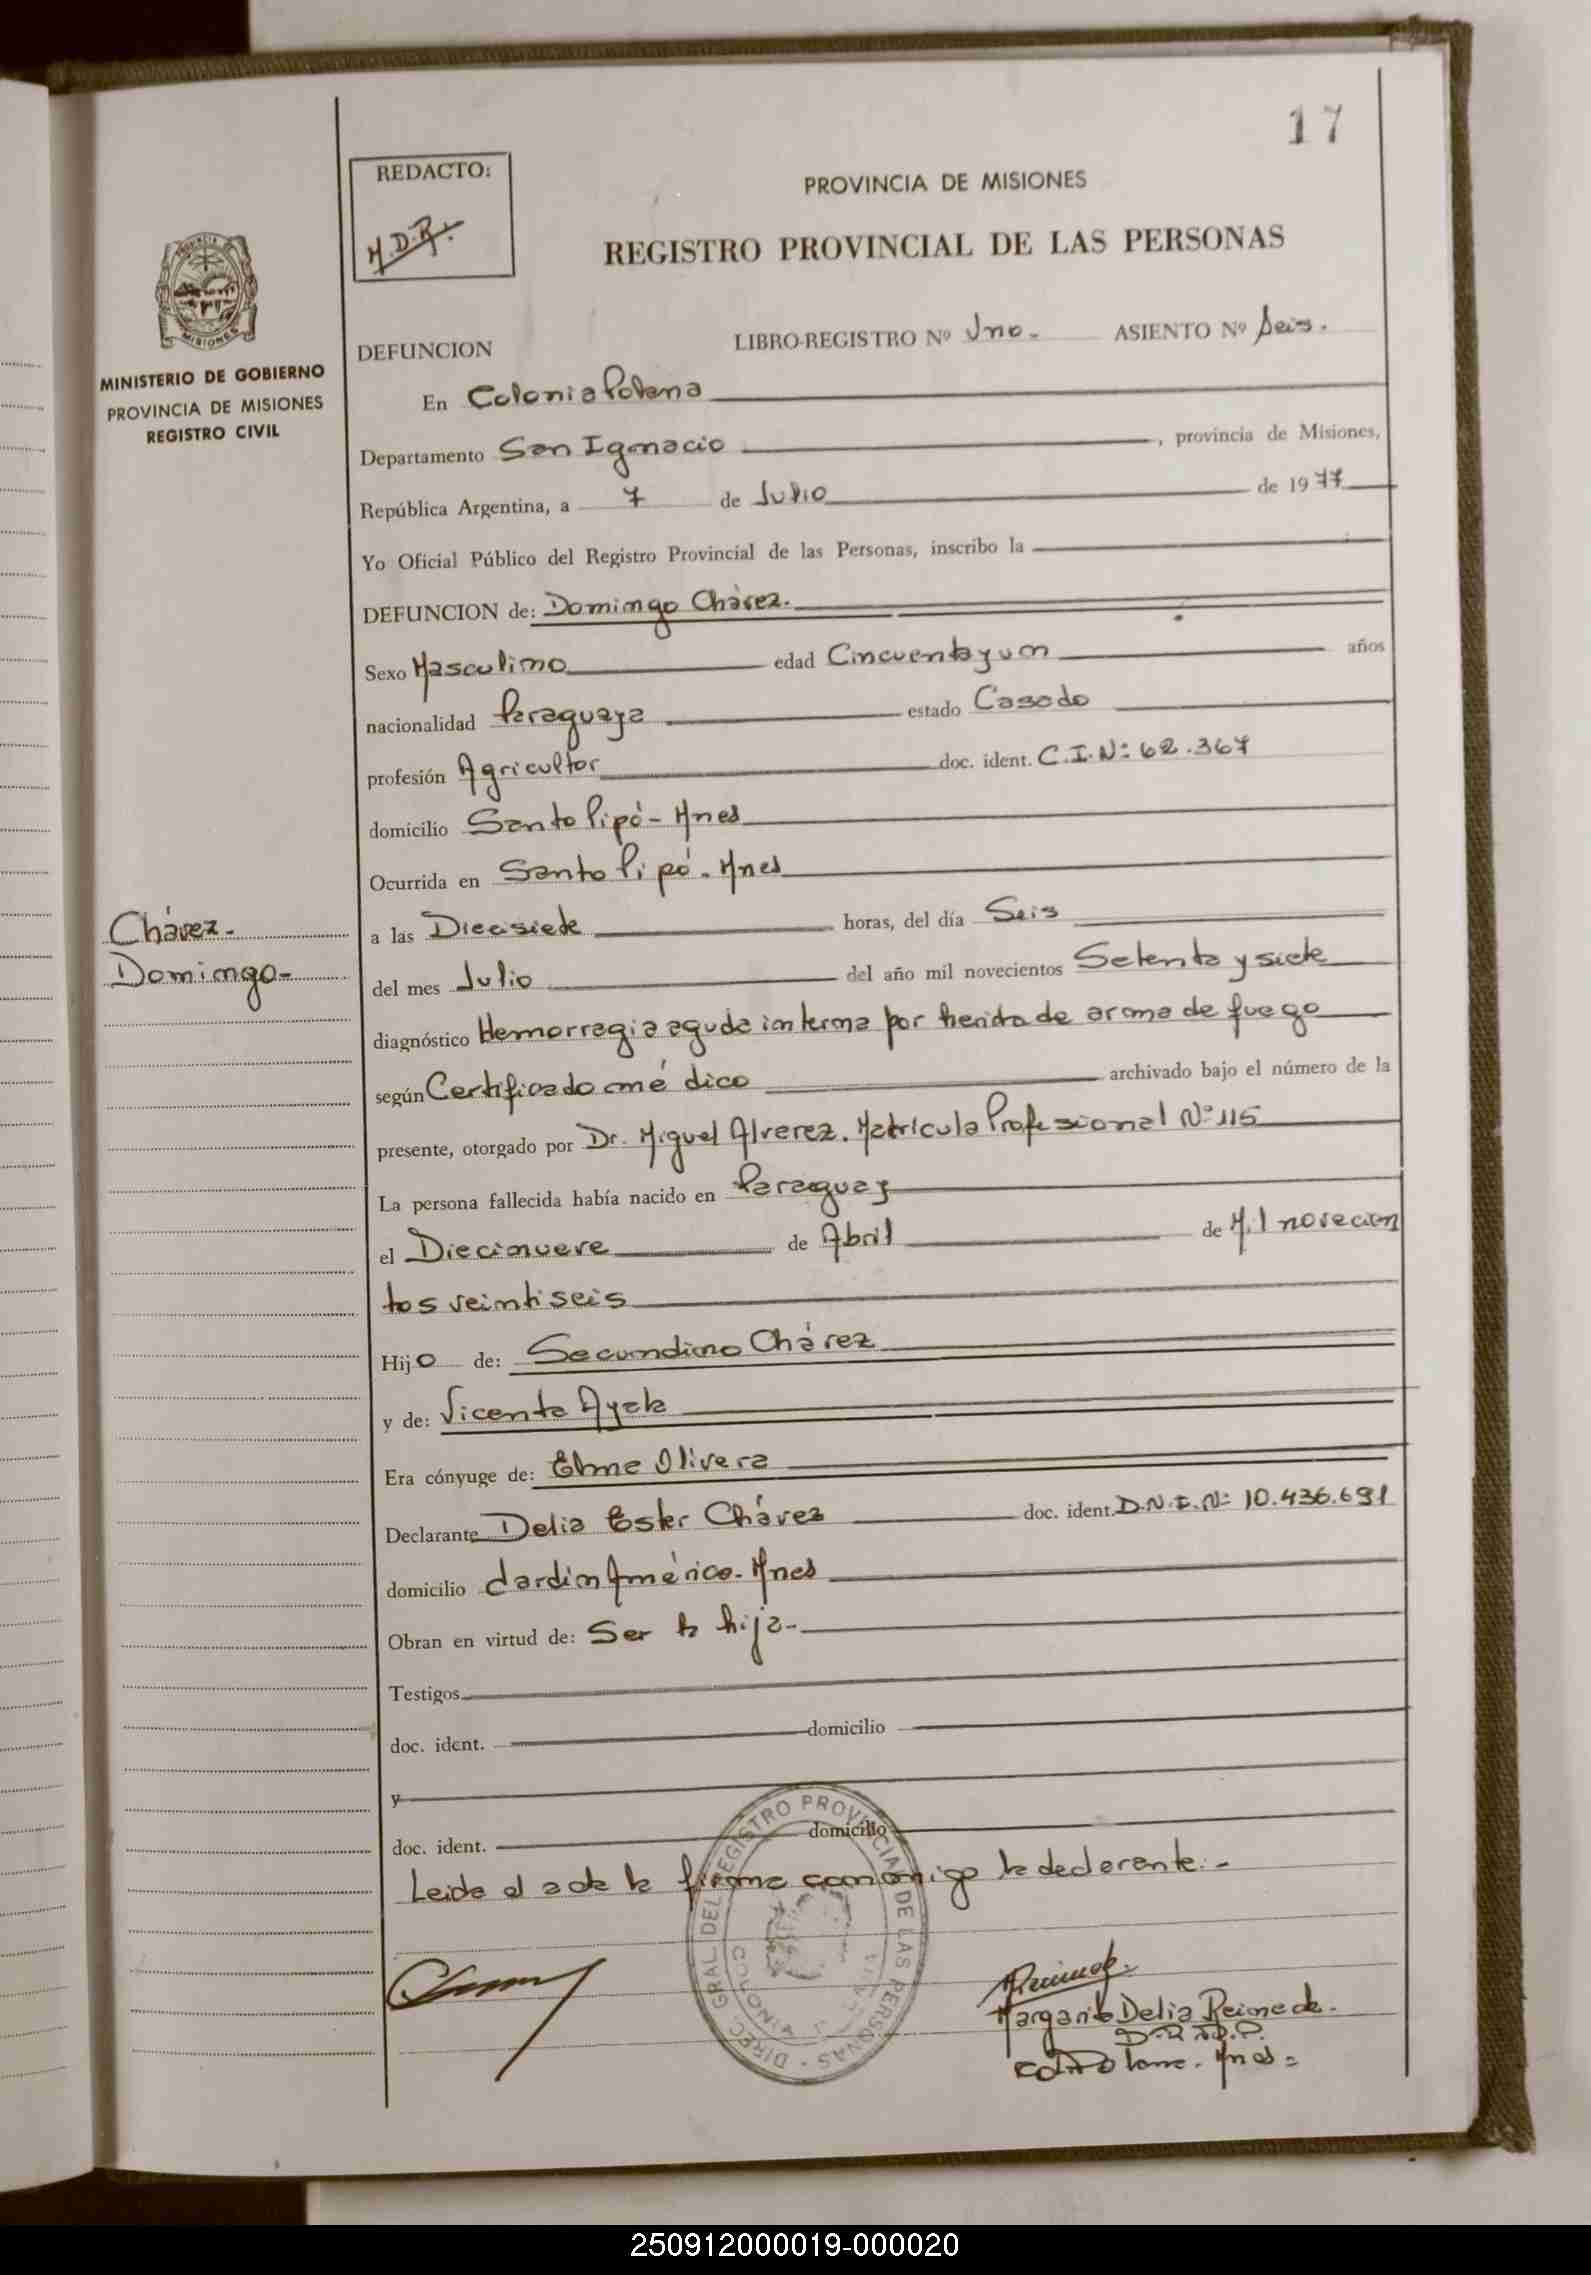 17
REDACTO:
M.D.R.
PROVINCIA DE MISIONES
REGISTRO PROVINCIAL DE LAS PERSONAS
MINISTERIO DE GOBIERNO
PROVINCIA DE MISIONES
REGISTRO CIVIL
DEFUNCION LIBRO-REGISTRO Nº Uno. ASIENTO Nº Seis.
En Colonia Polana
Departamento San Ignacio, provincia de Misiones,
República Argentina, a 7 de Julio de 1977
Yo Oficial Público del Registro Provincial de las Personas, inscribo la
DEFUNCION de: Domingo Chávez.
Sexo Masculino edad Cincuenta y un años
nacionalidad Paraguaya estado Casado
profesión Agricultor doc. ident. C.I.Nº 62.367
domicilio Santo Pipó - Mnes
Ocurrida en Santo Pipó. Mnes
Chávez.
Domingo-
a las Diecisiete horas, del día Seis
del mes Julio del año mil novecientos Setenta y siete
diagnóstico Hemorragia aguda interna por herida de arma de fuego
según Certificado médico archivado bajo el número de la
presente, otorgado por Dr. Miguel Alverez. Matrícula Profesional Nº 115
La persona fallecida había nacido en Paraguay
el Diecinueve de Abril de Mil novecien
tos veintiseis
Hijo de: Secundino Chávez
y de: Vicenta Ayala
Era cónyuge de: Elma Olivera
Declarante Delia Ester Chávez doc. ident. D.N.I.Nº 10.436.691
domicilio Jardín América. Mnes
Obran en virtud de: Ser la hija-
Testigos
doc. ident. domicilio
y
doc. ident. domicilio
Leida el acta la firma conmigo la declarante.-
DIREC. GRAL DEL REGISTRO PROVINCIAL DE LAS PERSONAS
Margarita Delia Reime de.
Col. Polana. Mnes=
250912000019-000020